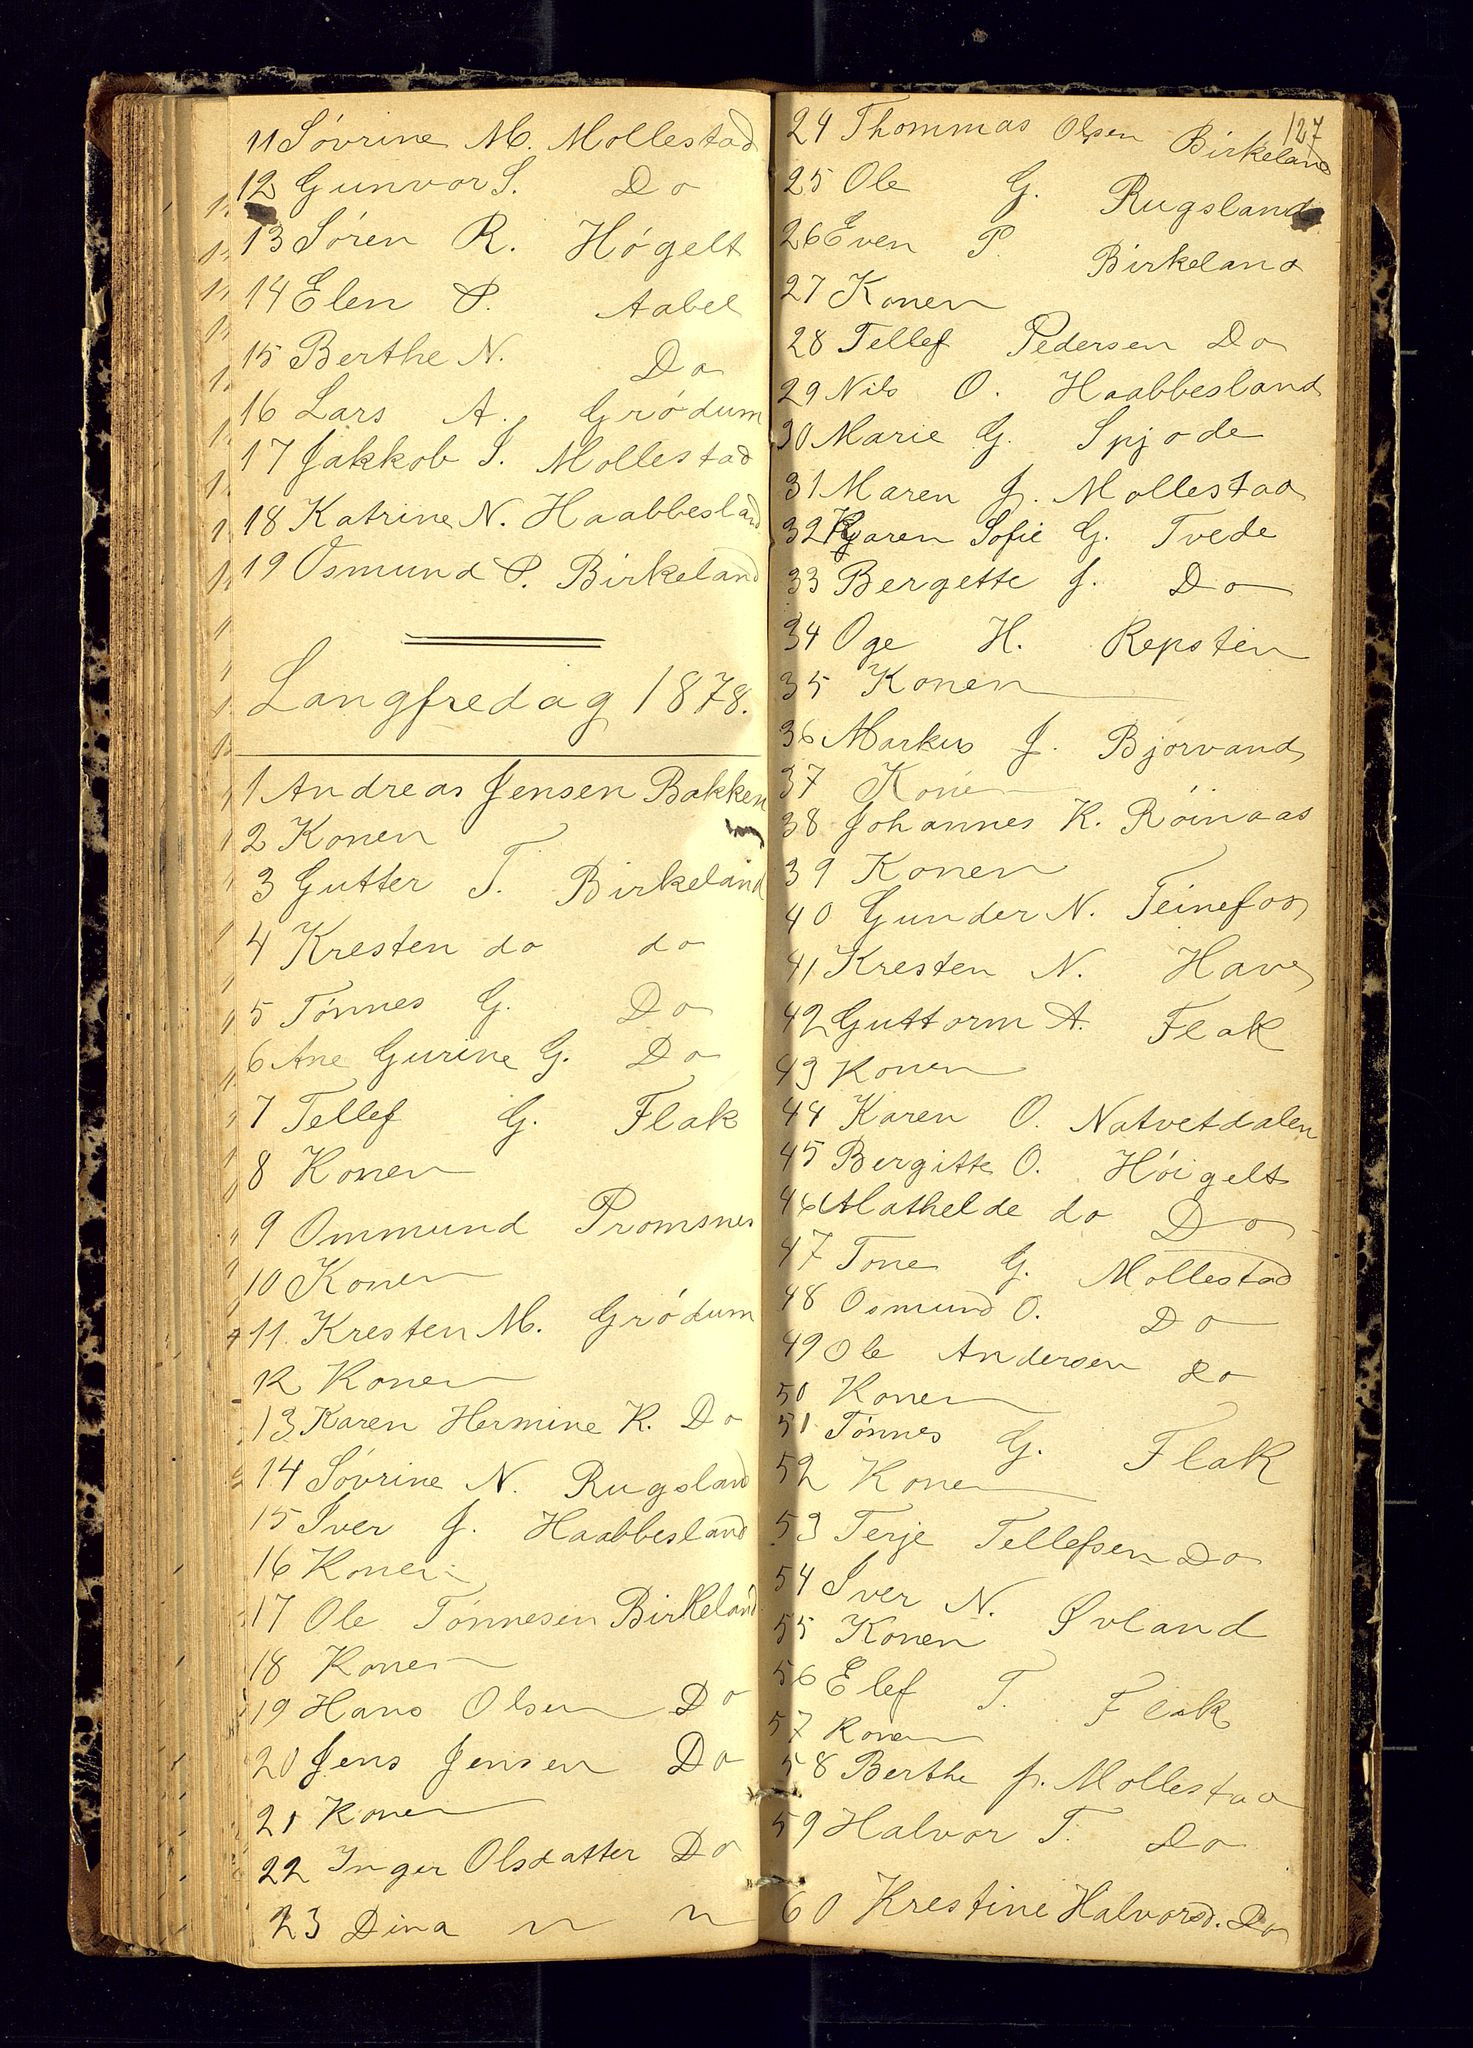 11 Sövrine M. Mollestad
12 Gunvor S. Do
13 Sören R. Högelt
14 Elen P. Aabel
15 Berthe N. Do
16 Lars A. Grödum
17 Jakkob S. Mollestad
18 Katrine N. Haabbesland
19 Osmund P. Birkeland
Langfredag 1878.
1 Andreas Jensen Bakken
2 Konen
3 Gutter T. Birkeland
4 Kresten do do
5 Tönnes G. Do
6 Ane Gurine G. Do
7 Tellef G. Flak
8 Konen
9 Ommund Promsnes
10 Konen
11 Kresten M. Grödum
12 Konen
13 Karen Hermine K. Do
14 Sövrine N. Rugsland
15 Iver J. Haabbesland
16 Konen
17 Ole Tönnesen Birkeland
18 Konen
19 Hans Olsen Do
20 Jens Jensen Do
21 Konen
22 Inger Olsdatter Do
23 Dina " "
127
24 Thommas Olsen Birkeland
25 Ole G. Rugsland
26 Even P. Birkeland
27 Konen
28 Tellef Pedersen Do
29 Nils O. Haabbesland
30 Marie G. Spjode
31 Maren J. Mollestad
32 Karen Sofie G. Tvede
33 Bergette J. Do
34 Oge H. Repsten
35 Konen
36 Markus J. Bjorvand
37 Konen
38 Johannes K. Röinaas
39 Konen
40 Gunder N. Teinefos
41 Kresten N. Have
42 Guttorm A. Flak
43 Konen
44 Karen O. Natvetdalen
45 Bergitte O. Höigelt
46 Mathelde do Do
47 Tone G. Mollestad
48 Osmund O. Do
49 Ole Andersen Do
50 Konen
51 Tönnes G. Flak
52 Konen
53 Terje Tellefsen Do
54 Iver N. Øvland
55 Konen
56 Elef T. Flak
57 Konen
58 Berthe J. Mollestad
59 Halvor T. Do
60 Krestine Halvorsd. Do